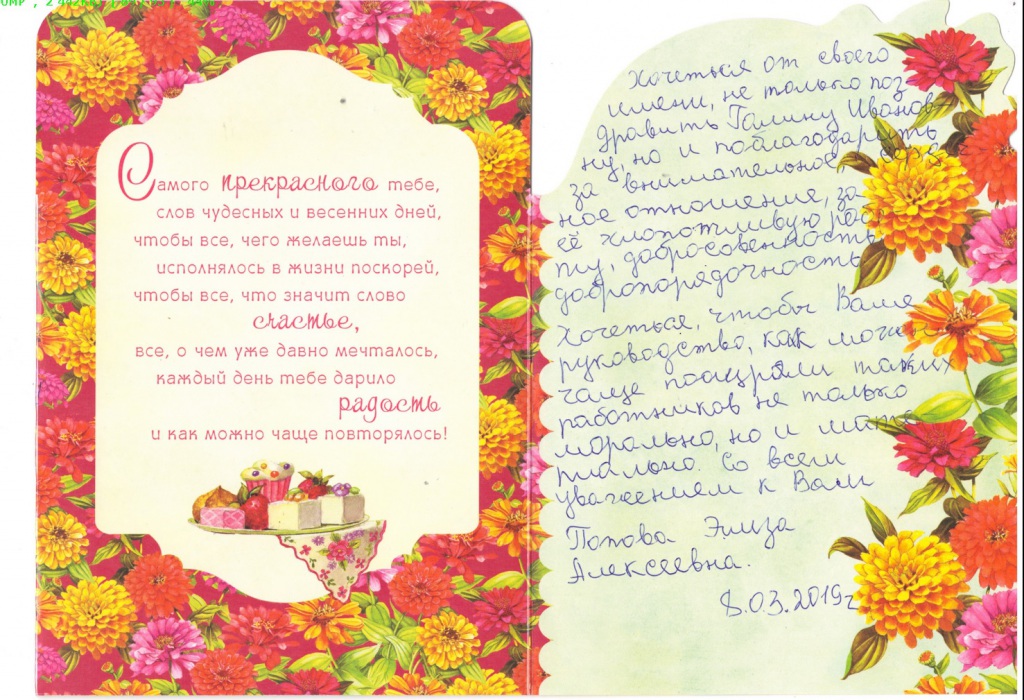 Самого прекрасного тебе,
слов чудесных и весенних дней,
чтобы все, чего желаешь ты,
исполнялось в жизни поскорей,
чтобы все, что значит слово
счастье,
все, о чем уже давно мечталось,
каждый день тебе дарило
радость
и как можно чаще повторялось!
Хочеться от своего
имени, не только поз
дравить Галину Иванов
ну, но и поблагодарить
за внимательное серд
ное отношение, за
её хлопотливую рабо
ту, добросовенность
добропорядочность
Хочеться, чтобы Ваше
руководство, как можно
чаще поощряли таких
работников не только
морально, но и мате
риально. Со всем
уважением к Вам
Попова Элиза
Алексеевна.
8.03.2019г